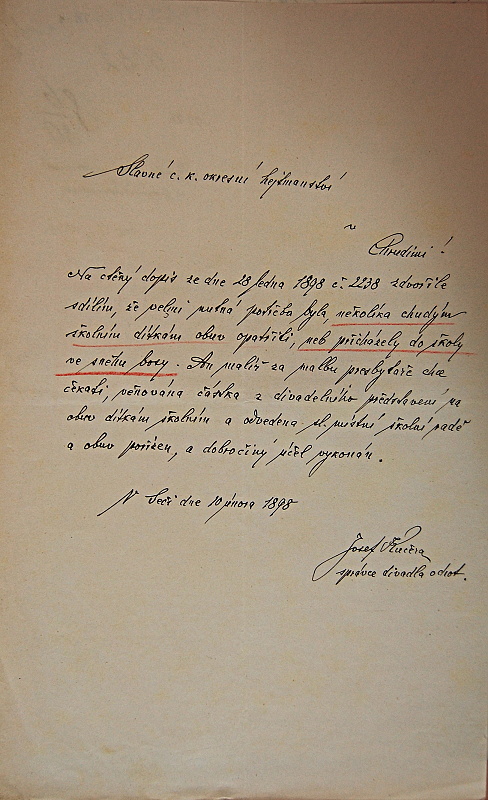 Slavné c. k. okresní hejtmanství
v
Chrudimi!
Na ctěný dopis ze dne 28 ledna 1898 č. 2238 zdvořile
sdílím, že velmi nutná potřeba byla, několika chudým
školním dítkám obuv opatřiti, neb přicházely do školy
ve sněhu bosy. An malíř za malbu presbytáře chce
čekati, věnována částka z divadelního představení na
obuv dítkám školním a odvedena sl. místní školní radě
a obuv pořízen, a dobročiný účel vykonán.
V Seči dne 10 února 1898
Josef Kučera
správce divadla ochot.